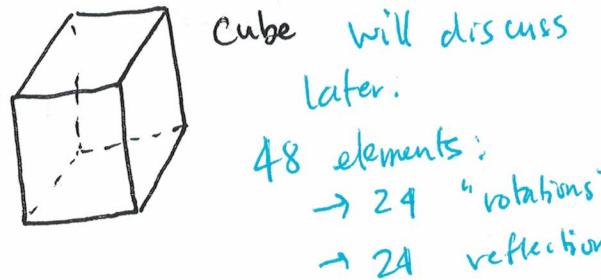 Cube will discuss
later.
48 elements:
→ 24 "rotations"
→ 24 reflection